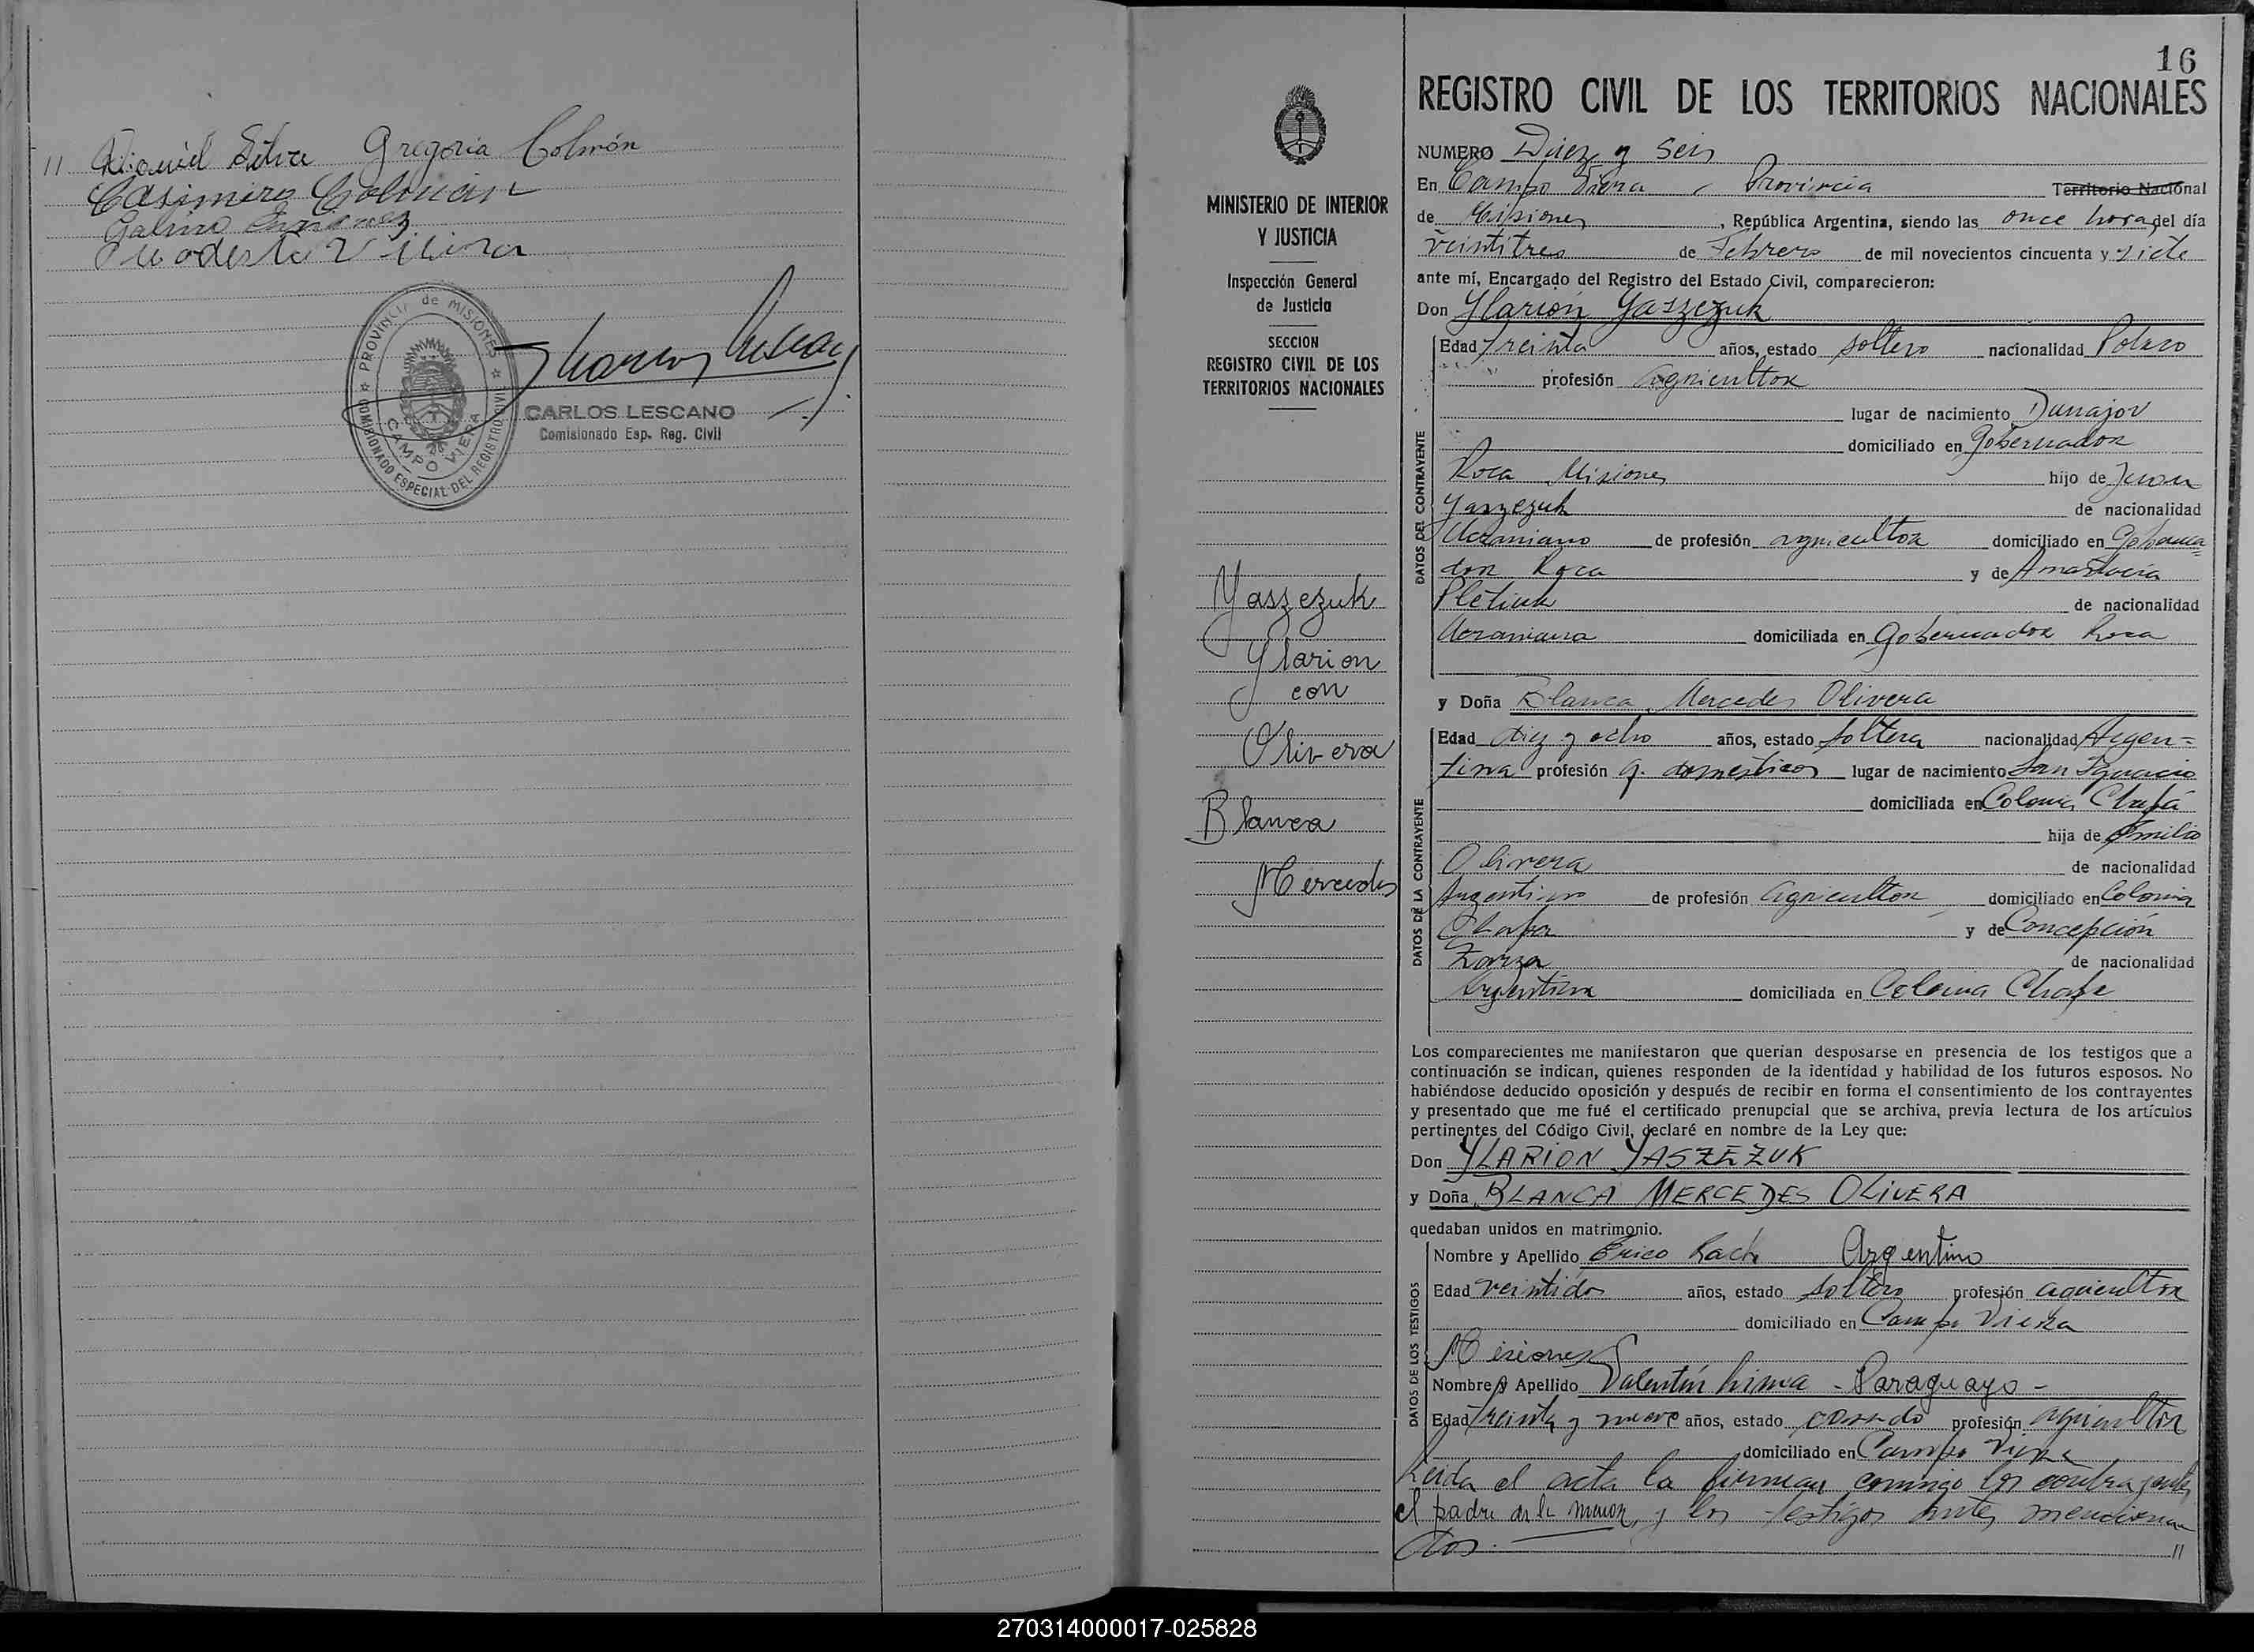 11 Miguel Silva Gregoria Colmán
Casimiro Colmán
Galino Enriquez
Modesta V Mira
PROVINCIA de MISIONES
COMISIONADO ESPECIAL DEL REGISTRO CIVIL
CAMPO VIERA
CARLOS LESCANO
Comisionado Esp. Reg. Civil
MINISTERIO DE INTERIOR
Y JUSTICIA
Inspección General
de Justicia
SECCION
REGISTRO CIVIL DE LOS
TERRITORIOS NACIONALES
Yaszezuk
Ylarion
con
Olivera
Blanca
Mercedes
16
REGISTRO CIVIL DE LOS TERRITORIOS NACIONALES
NUMERO Diez y Seis
En Campo Viera, Provincia Territorio Nacional
de Misiones, República Argentina, siendo las once horas del día
veintitres de Febrero de mil novecientos cincuenta y siete
ante mí, Encargado del Registro del Estado Civil, comparecieron:
Don Ylarión Yaszezuk
DATOS DEL CONTRAYENTE
Edad treinta años, estado soltero nacionalidad Polaco
profesión agricultor
lugar de nacimiento Dunajov
domiciliado en Gobernador
Roca Misiones hijo de Juan
Yaszezuk de nacionalidad
Ucraniano de profesión agricultor domiciliado en Goberna=
dor Roca y de Anastacia
Pletiuk de nacionalidad
Ucraniana domiciliada en Gobernador Roca
y Doña Blanca Mercedes Olivera
DATOS DE LA CONTRAYENTE
Edad diez y ocho años, estado soltera nacionalidad Argen=
tina profesión q. domesticos lugar de nacimiento San Ignacio
domiciliada en Colonia Chapá
hija de Emilio
Olivera de nacionalidad
Argentino de profesión agricultor domiciliado en Colonia
Chapa y de Concepción
Zarza de nacionalidad
Argentina domiciliada en Colonia Chapa
Los comparecientes me manifestaron que querían desposarse en presencia de los testigos que a
continuación se indican, quienes responden de la identidad y habilidad de los futuros esposos. No
habiéndose deducido oposición y después de recibir en forma el consentimiento de los contrayentes
y presentado que me fué el certificado prenupcial que se archiva, previa lectura de los artículos
pertinentes del Código Civil, declaré en nombre de la Ley que:
Don YLARION YASZEZUK
y Doña BLANCA MERCEDES OLIVERA
quedaban unidos en matrimonio.
DATOS DE LOS TESTIGOS
Nombre y Apellido Erico Rach Argentino
Edad veintidos años, estado soltero profesión agricultor
domiciliado en Campo Viera
Misiones
Nombre y Apellido Valentín Lima - Paraguayo -
Edad treinta y nueve años, estado casado profesión agricultor
domiciliado en Campo Viera
Leida el acta la firman conmigo los contrayentes
el padre de la menor, y los testigos antes menciona
dos. 11
270314000017-025828